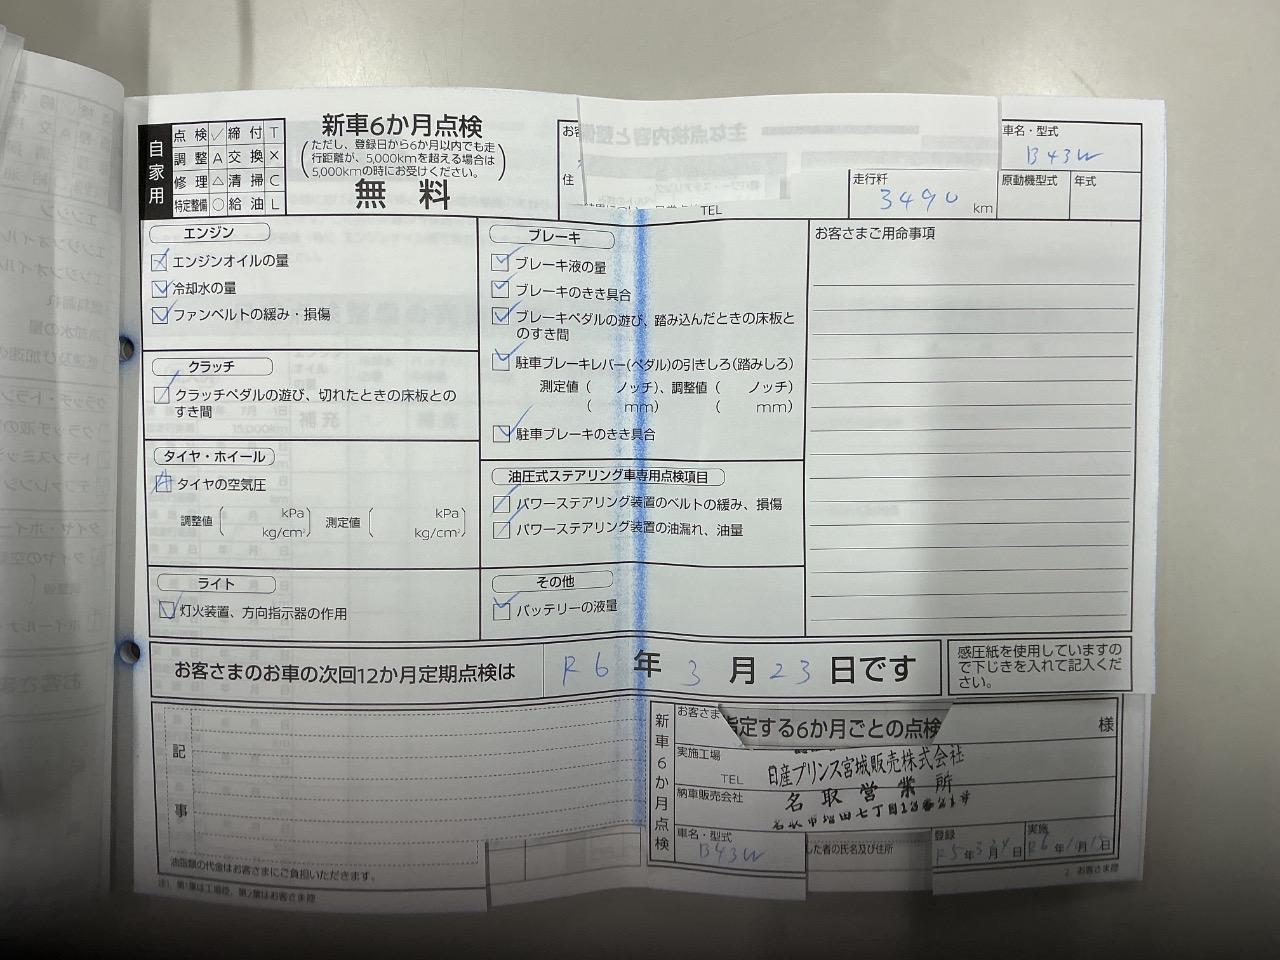 自家用
点検 ✓ 締付 T
調整 A 交換 ×
修理 △ 清掃 C
特定整備 ○ 給油 L
新車6か月点検
(ただし、登録日から6か月以内でも走
行距離が、5,000kmを超える場合は
5,000kmの時にお受けください。)
無料
お客
住
TEL
車名・型式
B43W
走行粁
3490 km
原動機型式
年式
エンジン
エンジンオイルの量
冷却水の量
ファンベルトの緩み・損傷
クラッチ
クラッチペダルの遊び、切れたときの床板との
すき間
タイヤ・ホイール
タイヤの空気圧
調整値( kPa kg/cm²) 測定値( kPa kg/cm²)
ライト
灯火装置、方向指示器の作用
ブレーキ
ブレーキ液の量
ブレーキのきき具合
ブレーキペダルの遊び、踏み込んだときの床板と
のすき間
駐車ブレーキレバー(ペダル)の引きしろ(踏みしろ)
測定値( ノッチ)、調整値( ノッチ)
( mm) ( mm)
駐車ブレーキのきき具合
油圧式ステアリング車専用点検項目
パワーステアリング装置のベルトの緩み、損傷
パワーステアリング装置の油漏れ、油量
その他
バッテリーの液量
お客さまご用命事項
お客さまのお車の次回12か月定期点検は R6年3月23日です
感圧紙を使用していますの
で下じきを入れて記入くだ
さい。
記事
油脂類の代金はお客さまにご負担いただきます。
注)、第1葉は工場控、第2葉はお客さま控
新車6か月点検
お客さま
指定する6か月ごとの点検
様
実施工場
TEL
日産プリンス宮城販売株式会社
納車販売会社
名取営業所
車名・型式
B43W
した者の氏名及び住所
登録
R5年3月24日
実施
R6年1月15日
2 お客さま控